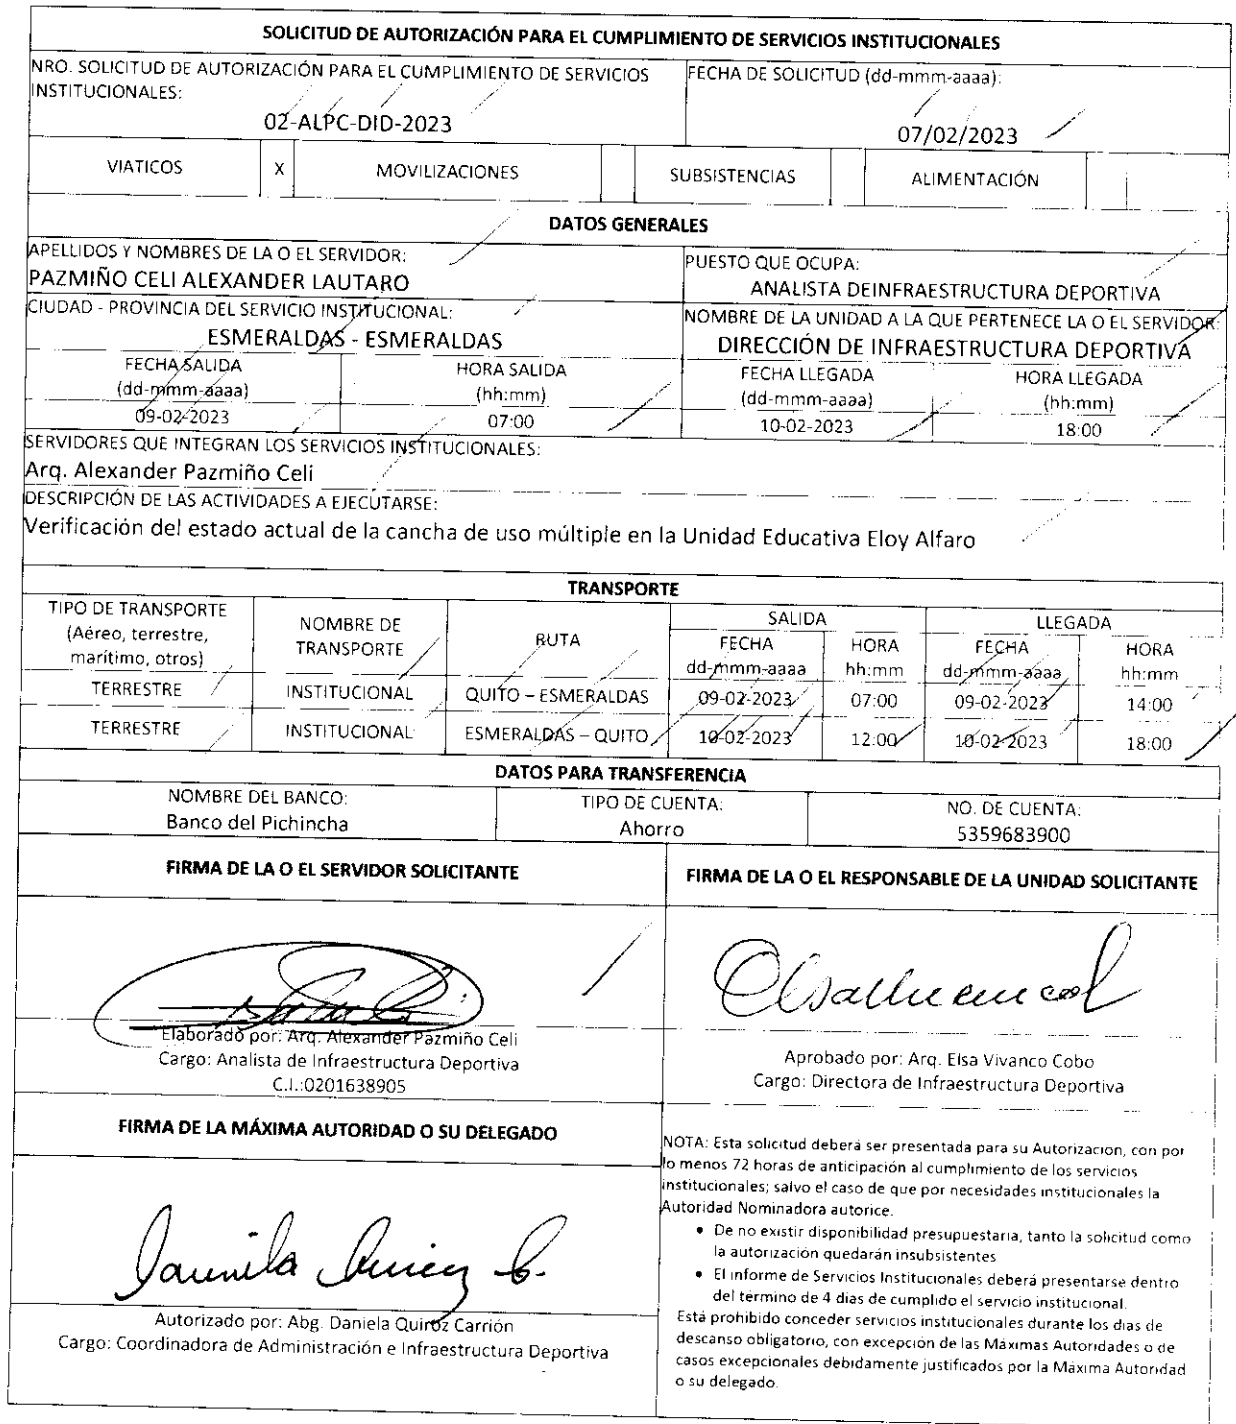 SOLICITUD DE AUTORIZACIÓN PARA EL CUMPLIMIENTO DE SERVICIOS INSTITUCIONALES
NRO. SOLICITUD DE AUTORIZACIÓN PARA EL CUMPLIMIENTO DE SERVICIOS
INSTITUCIONALES:
02-ALPC-DID-2023
FECHA DE SOLICITUD (dd-mmm-aaaa):
07/02/2023
VIATICOS X MOVILIZACIONES SUBSISTENCIAS ALIMENTACIÓN
DATOS GENERALES
APELLIDOS Y NOMBRES DE LA O EL SERVIDOR:
PAZMIÑO CELI ALEXANDER LAUTARO
PUESTO QUE OCUPA:
ANALISTA DEINFRAESTRUCTURA DEPORTIVA
CIUDAD - PROVINCIA DEL SERVICIO INSTITUCIONAL:
ESMERALDAS - ESMERALDAS
NOMBRE DE LA UNIDAD A LA QUE PERTENECE LA O EL SERVIDOR:
DIRECCIÓN DE INFRAESTRUCTURA DEPORTIVA
FECHA SALIDA HORA SALIDA FECHA LLEGADA HORA LLEGADA
(dd-mmm-aaaa) (hh:mm) (dd-mmm-aaaa) (hh:mm)
09-02-2023 07:00 10-02-2023 18:00
SERVIDORES QUE INTEGRAN LOS SERVICIOS INSTITUCIONALES:
Arq. Alexander Pazmiño Celi
DESCRIPCIÓN DE LAS ACTIVIDADES A EJECUTARSE:
Verificación del estado actual de la cancha de uso múltiple en la Unidad Educativa Eloy Alfaro
TRANSPORTE
TIPO DE TRANSPORTE
(Aéreo, terrestre,
marítimo, otros)
NOMBRE DE
TRANSPORTE
RUTA
SALIDA LLEGADA
FECHA HORA FECHA HORA
dd-mmm-aaaa hh:mm dd-mmm-aaaa hh:mm
TERRESTRE INSTITUCIONAL QUITO – ESMERALDAS 09-02-2023 07:00 09-02-2023 14:00
TERRESTRE INSTITUCIONAL ESMERALDAS – QUITO 10-02-2023 12:00 10-02-2023 18:00
DATOS PARA TRANSFERENCIA
NOMBRE DEL BANCO: TIPO DE CUENTA: NO. DE CUENTA:
Banco del Pichincha Ahorro 5359683900
FIRMA DE LA O EL SERVIDOR SOLICITANTE
Elaborado por: Arq. Alexander Pazmiño Celi
Cargo: Analista de Infraestructura Deportiva
C.I.:0201638905
FIRMA DE LA O EL RESPONSABLE DE LA UNIDAD SOLICITANTE
Aprobado por: Arq. Elsa Vivanco Cobo
Cargo: Directora de Infraestructura Deportiva
FIRMA DE LA MÁXIMA AUTORIDAD O SU DELEGADO
Autorizado por: Abg. Daniela Quiroz Carrión
Cargo: Coordinadora de Administración e Infraestructura Deportiva
NOTA: Esta solicitud deberá ser presentada para su Autorizacion, con por
lo menos 72 horas de anticipación al cumplimiento de los servicios
institucionales; salvo el caso de que por necesidades institucionales la
Autoridad Nominadora autorice.
• De no existir disponibilidad presupuestaria, tanto la solicitud como
la autorización quedarán insubsistentes
• El informe de Servicios Institucionales deberá presentarse dentro
del término de 4 dias de cumplido el servicio institucional.
Está prohibido conceder servicios institucionales durante los dias de
descanso obligatorio, con excepción de las Máximas Autoridades o de
casos excepcionales debidamente justificados por la Máxima Autoridad
o su delegado.